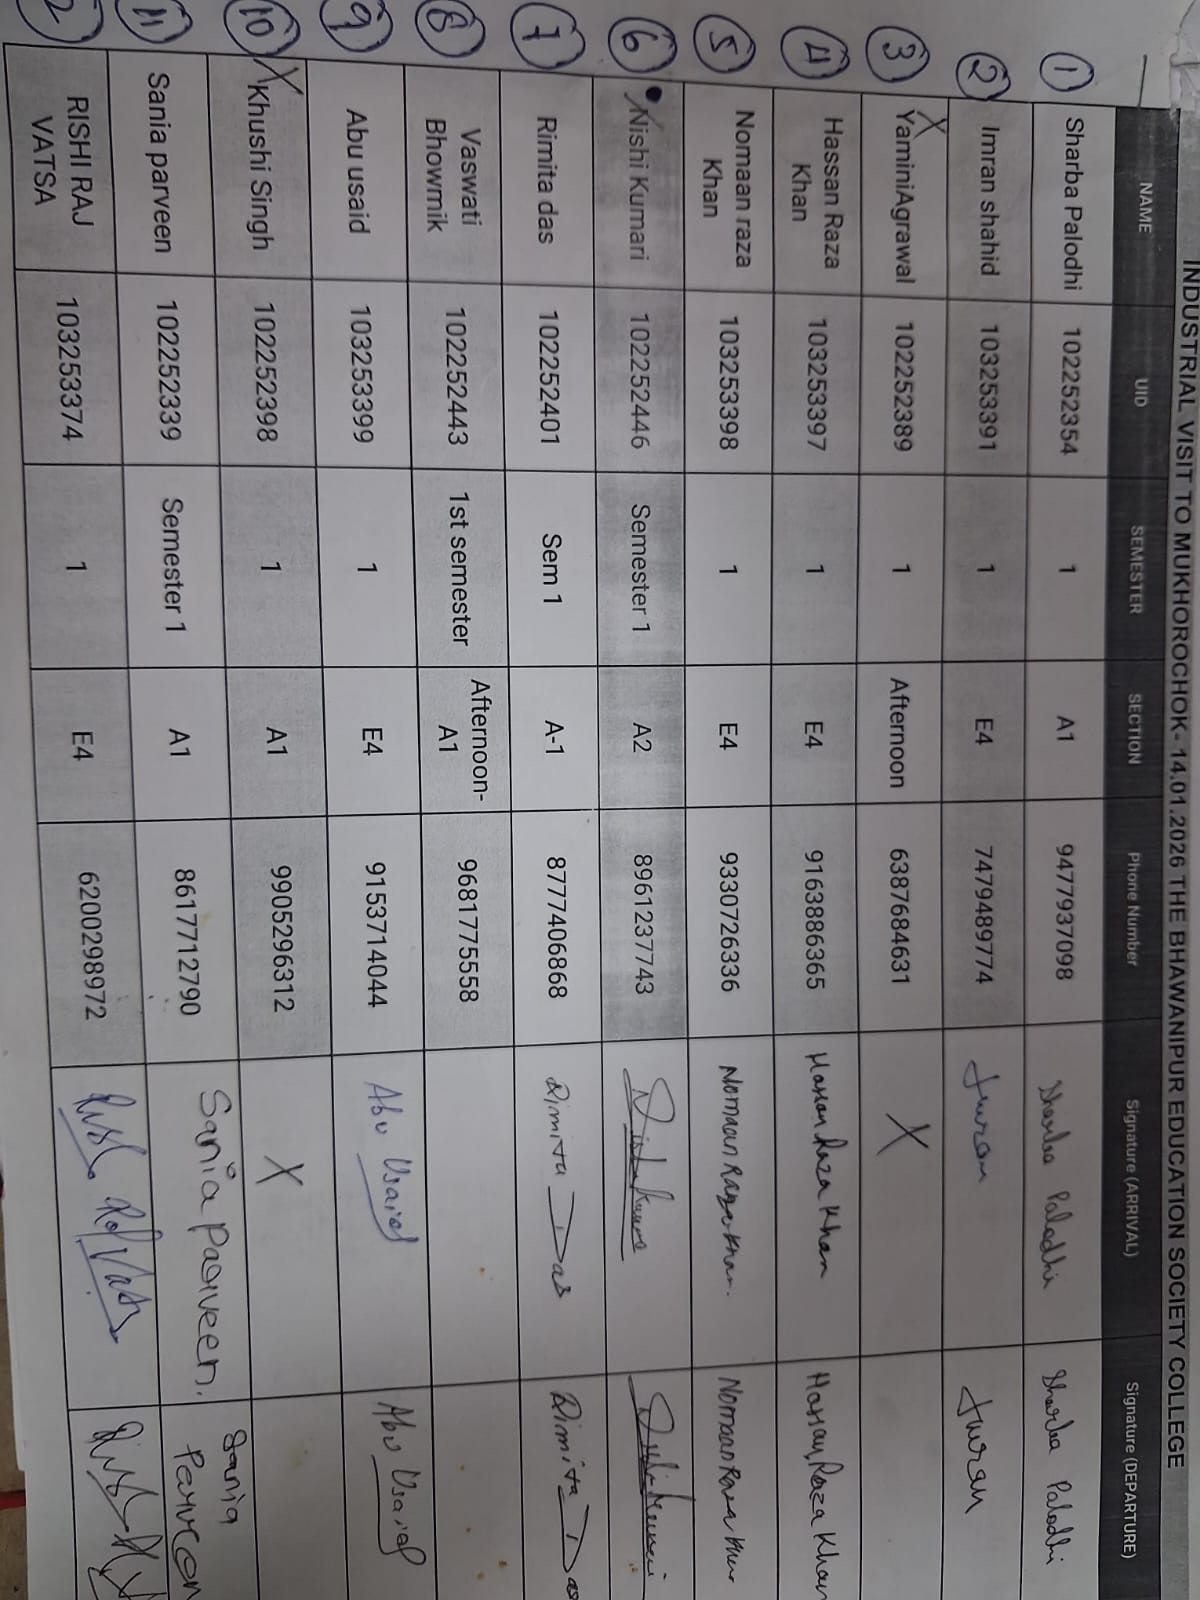 INDUSTRIAL VISIT TO MUKHOROCHOK- 14.01.2026 THE BHAWANIPUR EDUCATION SOCIETY COLLEGE
NAME UID SEMESTER SECTION Phone Number Signature (ARRIVAL) Signature (DEPARTURE)
1 Sharba Palodhi 102252354 1 A1 9477937098 Sharba Palodhi Sharba Palodhi
2 Imran shahid 103253391 1 E4 7479489774 Imran Imran
3 X YaminiAgrawal 102252389 1 Afternoon 6387684631 X
4 Hassan Raza Khan 103253397 1 E4 9163886365 Hassan Raza Khan Hassan Raza Khan
5 Nomaan raza Khan 103253398 1 E4 9330726336 Nomaan Raza Khan. Nomaan Raza Khan
6 X Nishi Kumari 102252446 Semester 1 A2 8961237743
7 Rimita das 102252401 Sem 1 A-1 8777406868 Rimita Das Rimita Das
8 Vaswati Bhowmik 102252443 1st semester Afternoon-A1 9681775558
9 Abu usaid 103253399 1 E4 9153714044 Abu Usaid Abu Usaid
10 X Khushi Singh 102252398 1 A1 9905296312 X
11 Sania parveen 102252339 Semester 1 A1 8617712790 Sania Parveen. Sania Parveen
2 RISHI RAJ VATSA 103253374 1 E4 6200298972